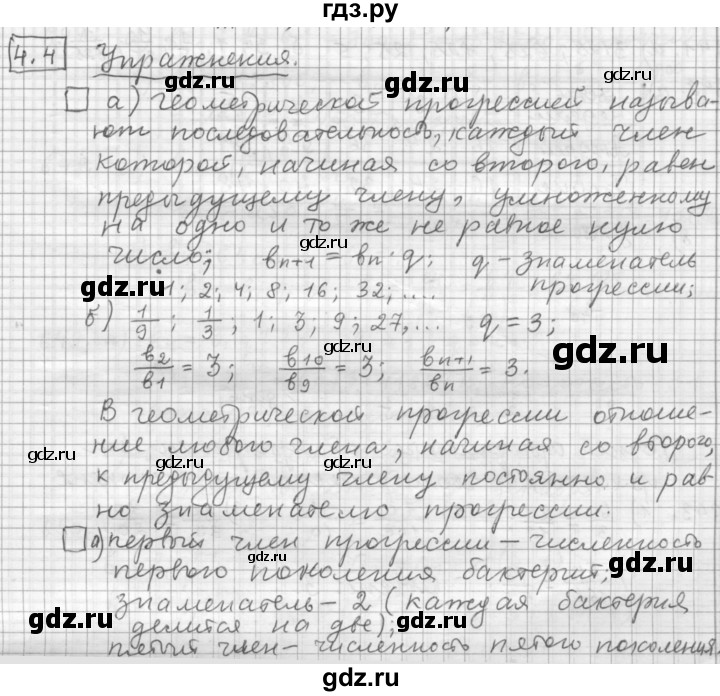 гдз.ру
4.4 Упражнения.
gdz.ru gdz.ru
а) Геометрической прогрессией называ-
ют последовательность, каждый член
gdz.ru gdz.ru
которой, начиная со второго, равен
предыдущему члену, умноженному
на одно и то же не равное нулю
gdz.ru
число; вn+1 = вn · q; q - знаменатель
gdz.ru 1; 2; 4; 8; 16; 32; .... прогрессии;
б) 1/9; 1/3; 1; 3; 9; 27, ... q = 3;
gdz.ru
в2/в1 = 3; в10/в9 = 3; вn+1/вn = 3.
В геометрической прогрессии отноше-
ние любого члена, начиная со второго,
gdz.ru gdz.ru gdz.ru
к предыдущему члену постоянно и рав-
но знаменателю прогрессии.
gdz.ru
а) первый член прогрессии - численность
gdz.ru gdz.ru
первого поколения бактерий,
знаменатель - 2 (каждая бактерия
делится на две);
gdz.ru
пятый член - численность пятого поколения.
гдз.ру